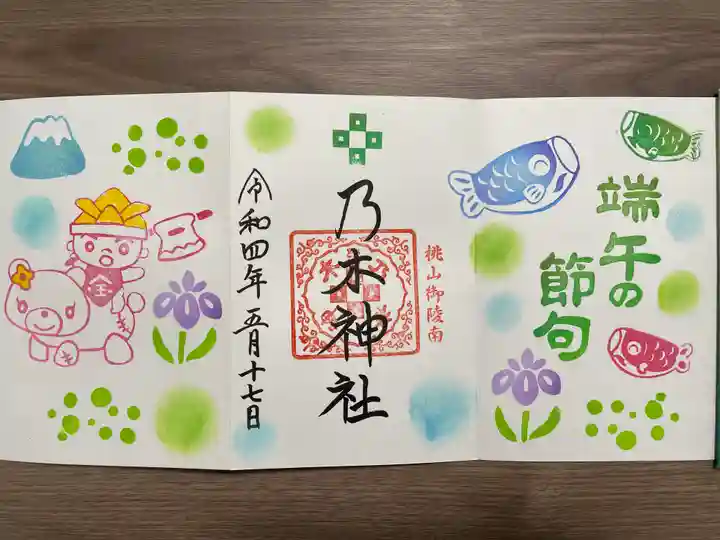 端午の
節句
桃山御陵南
乃木神社
令和四年 五月十七日
金